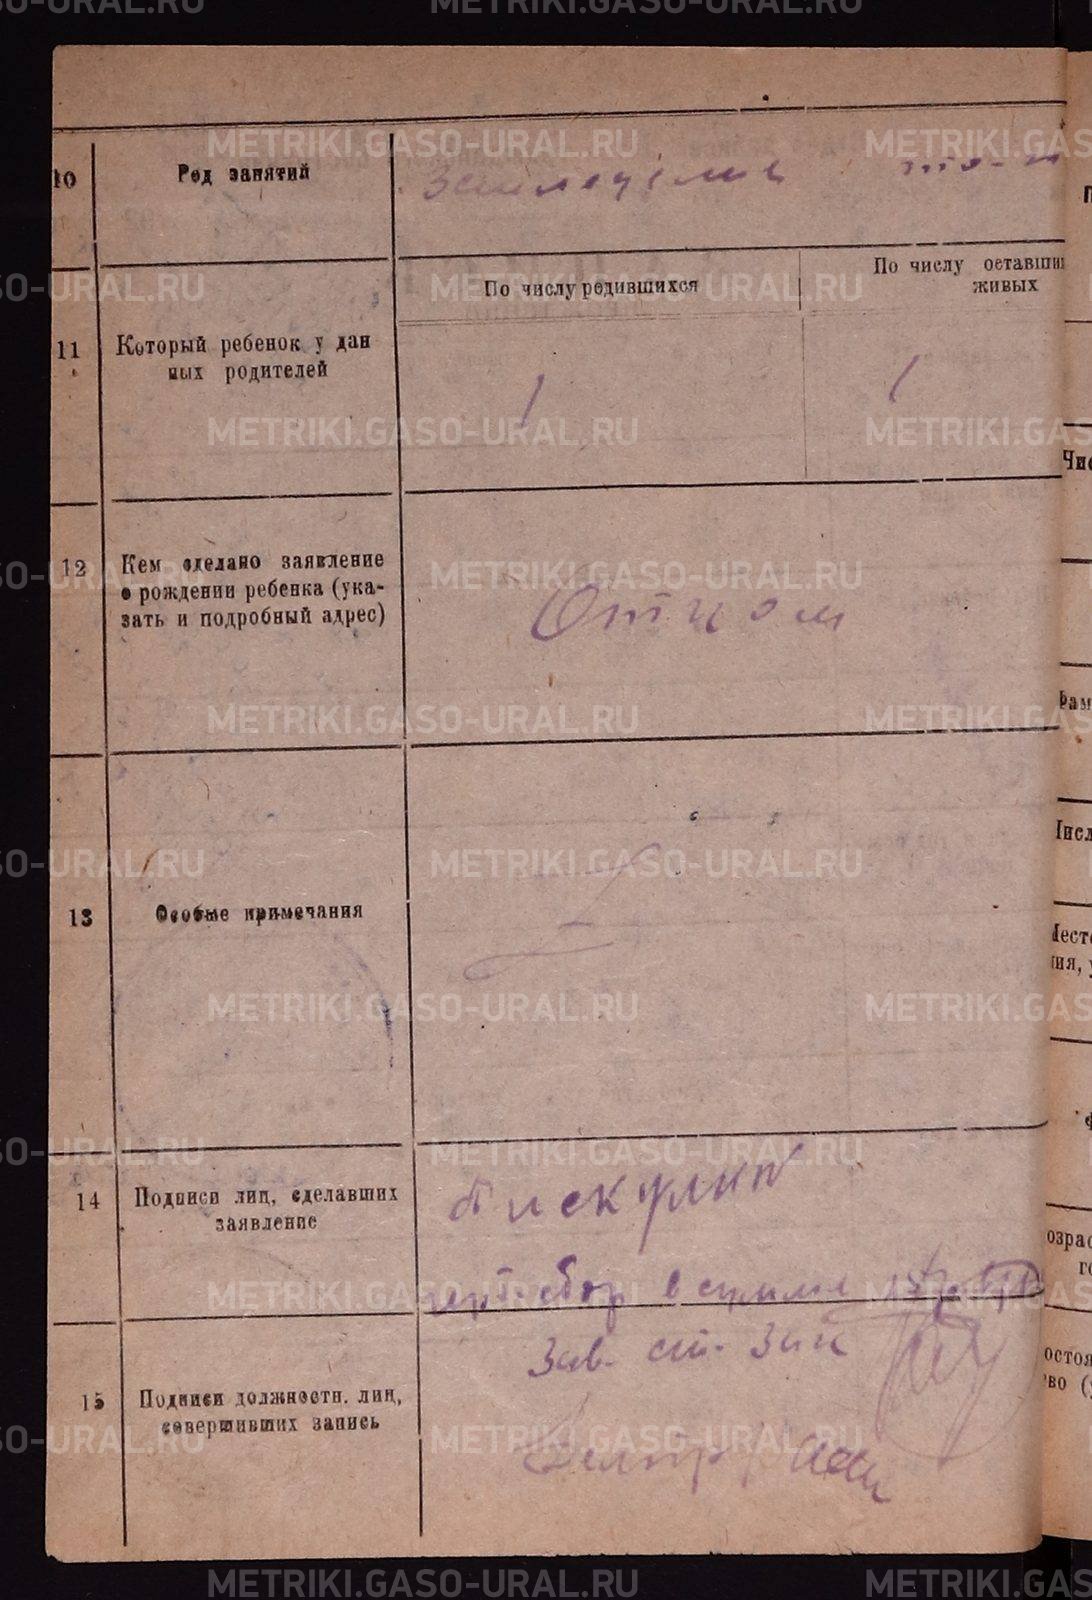 METRIKI.GASO-URAL.RU
10
Род занятий
то-ж
11
Который ребенок у дан
ных родителей
По числу родившихся
По числу оставши
живых
1
1
12
Кем сделано заявление
о рождении ребенка (ука-
зать и подробный адрес)
Отцом
13
Особые примечания
14
Подписи лиц, сделавших
заявление
Пискулин
сбор в сумме
15
Подписи должностн. лиц,
совершивших запись
Зав. ст.
Чис
есто
ния, у
озрас
го
остоя
во (